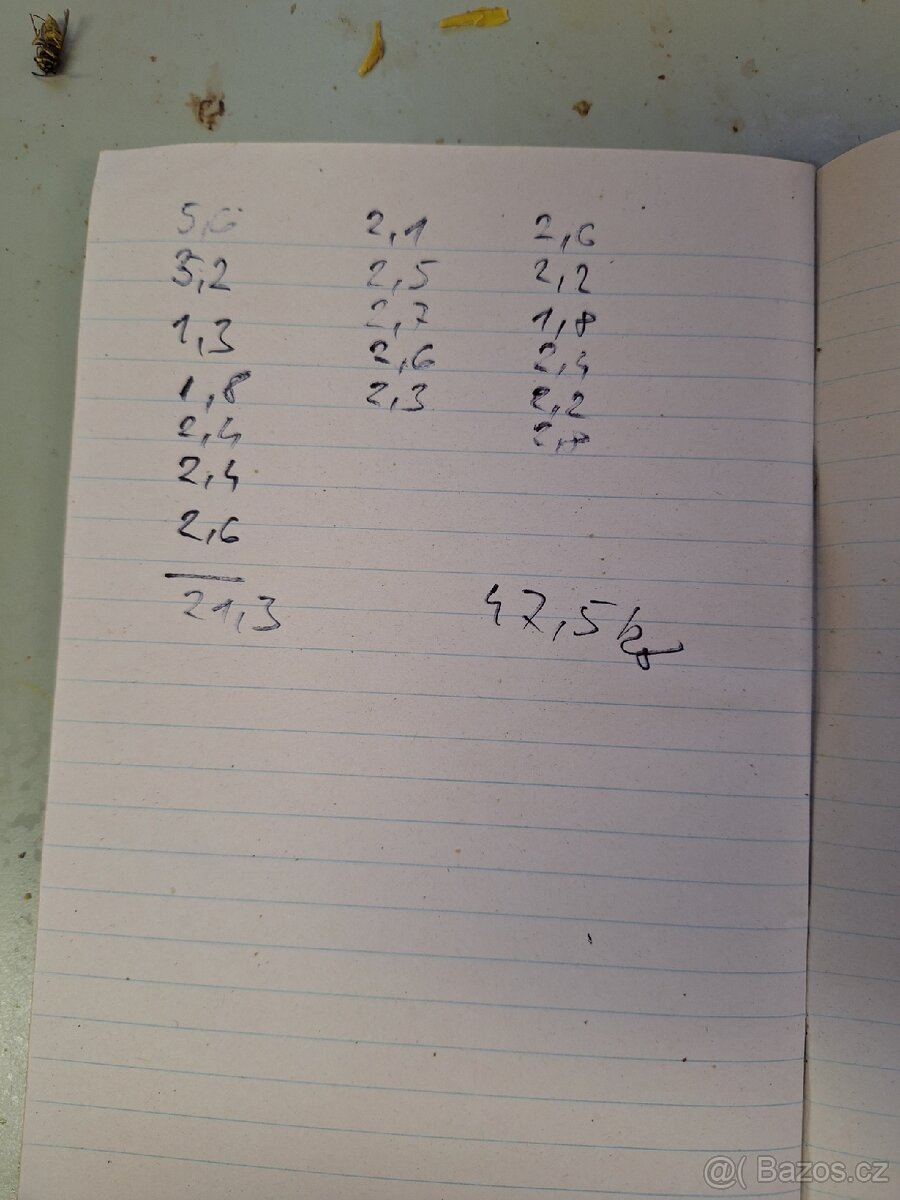 5,6
5,2
1,3
1,8
2,4
2,4
2,6
21,3
2,1
2,5
2,7
2,6
2,3
2,6
2,2
1,8
2,4
2,2
2,8
47,5 kg
@( Bazos.cz